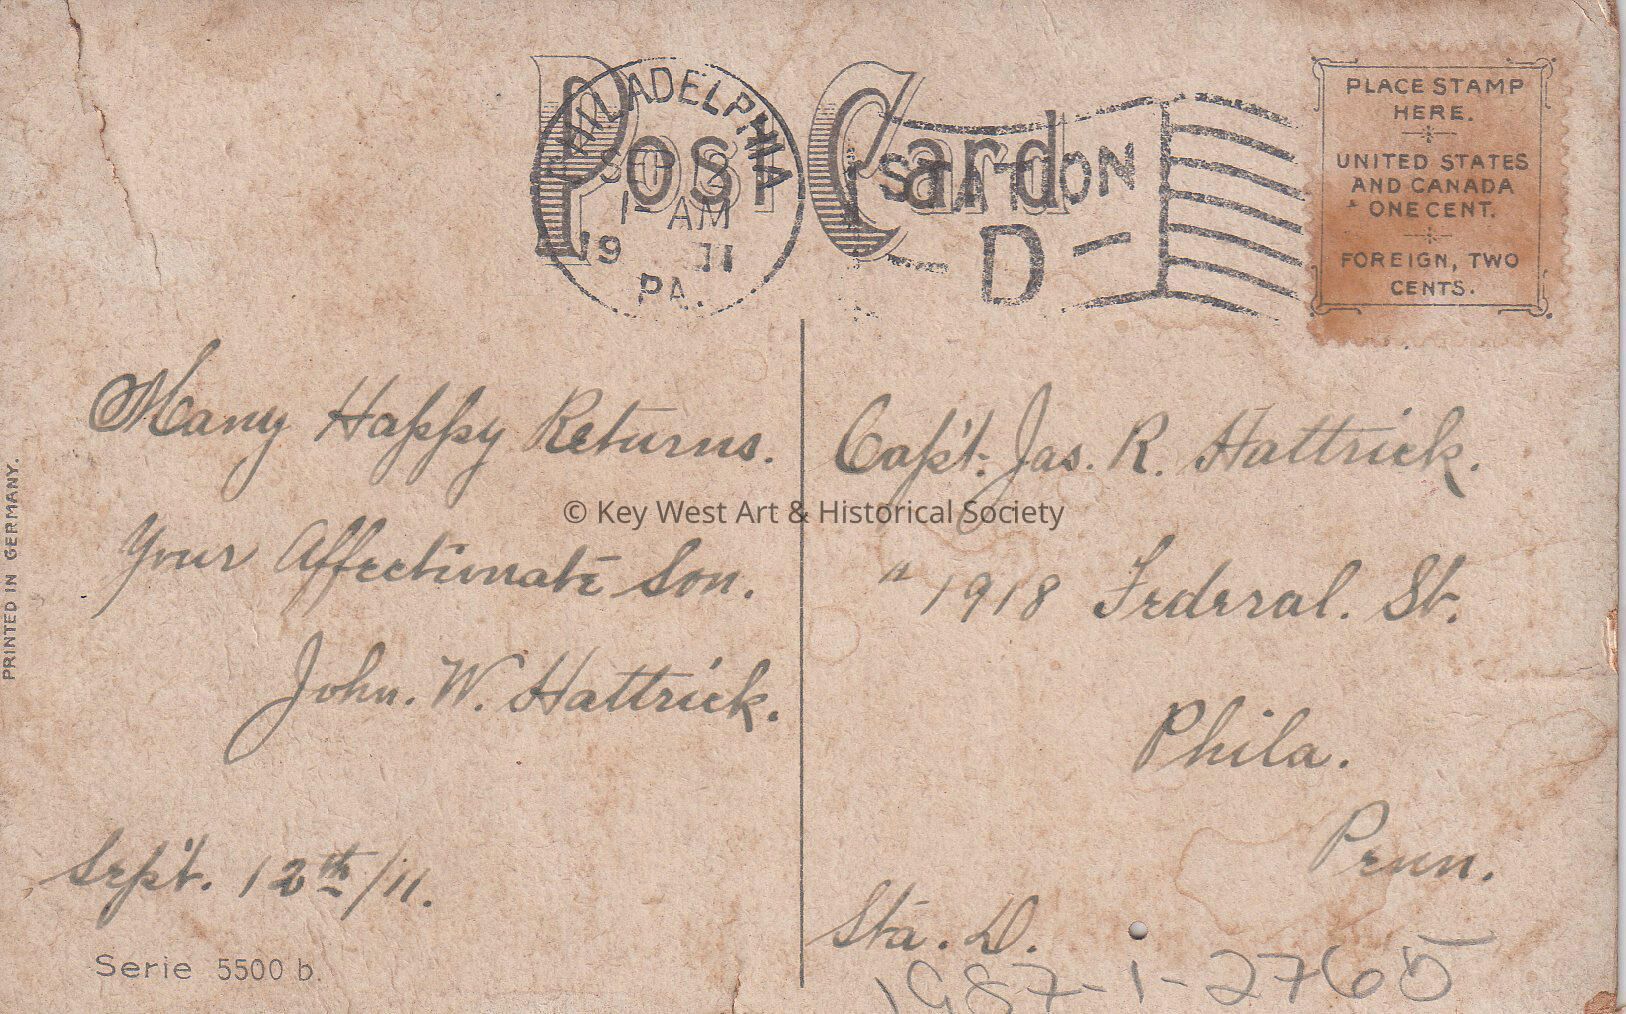 Post Card
PHILADELPHIA
SEP 12
1- AM
19 11
PA.
STATION
D
PLACE STAMP
HERE.
UNITED STATES
AND CANADA
ONE CENT.
FOREIGN, TWO
CENTS.
Many Happy Returns.
Your Affectionate Son.
John. W. Hattrick.
Sep't. 12th/11.
Serie 5500 b.
PRINTED IN GERMANY.
Cap't. Jas. R. Hattrick.
"1918 Federal. St.
Phila.
Penn.
Sta. D.
1987-1-2765
© Key West Art & Historical Society